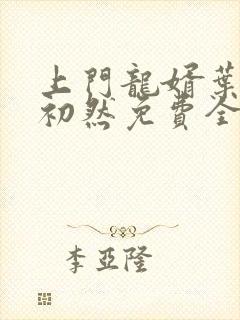 上門龍婿葉
初然免費全
李亞隆